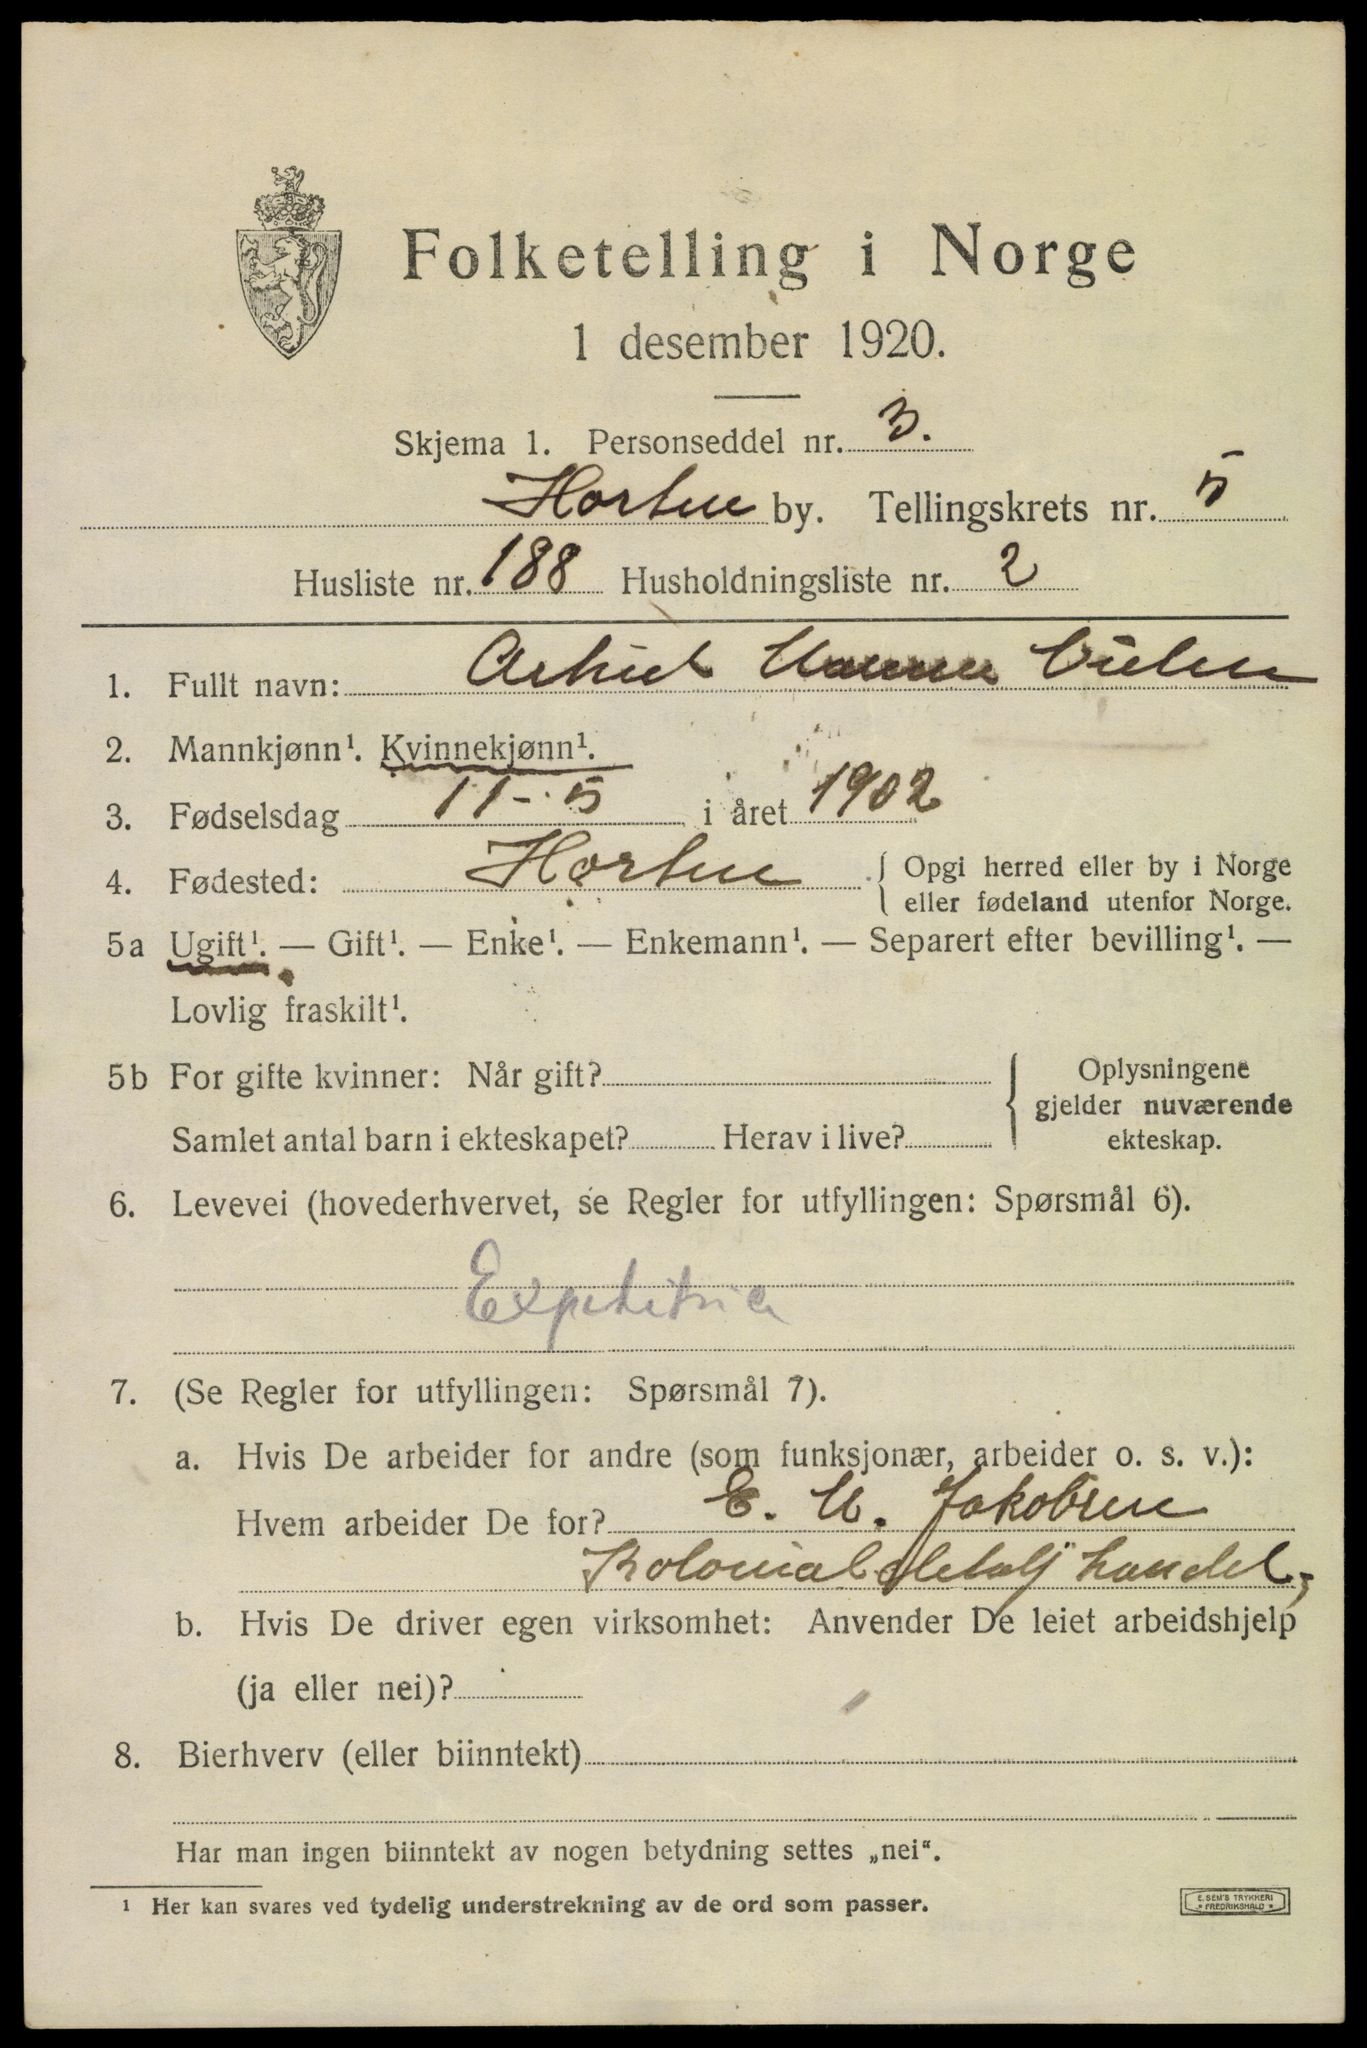 Folketelling i Norge
1 desember 1920.
Skjema 1. Personseddel nr. 3.
Horten by. Tellingskrets nr. 5
Husliste nr. 188 Husholdningsliste nr. 2
1. Fullt navn:
2. Mannkjønn¹. Kvinnekjønn¹.
3. Fødselsdag 11-5 i året 1902
4. Fødested: Horten { Opgi herred eller by i Norge
eller fødeland utenfor Norge.
5a Ugift¹. — Gift¹. — Enke¹. — Enkemann¹. — Separert efter bevilling¹. —
Lovlig fraskilt¹.
5b For gifte kvinner: Når gift? { Oplysningene
gjelder nuværende
Samlet antal barn i ekteskapet? Herav i live? ekteskap.
6. Levevei (hovederhvervet, se Regler for utfyllingen: Spørsmål 6).
Expeditrice
7. (Se Regler for utfyllingen: Spørsmål 7).
a. Hvis De arbeider for andre (som funksjonær, arbeider o. s. v.):
Hvem arbeider De for? E. M. Jakobsen
Kolonial detalj handel,
b. Hvis De driver egen virksomhet: Anvender De leiet arbeidshjelp
(ja eller nei)?
8. Bierhverv (eller biinntekt)
Har man ingen biinntekt av nogen betydning settes „nei“.
¹ Her kan svares ved tydelig understrekning av de ord som passer.
E. SEM'S TRYKKERI
* FREDRIKSHALD *